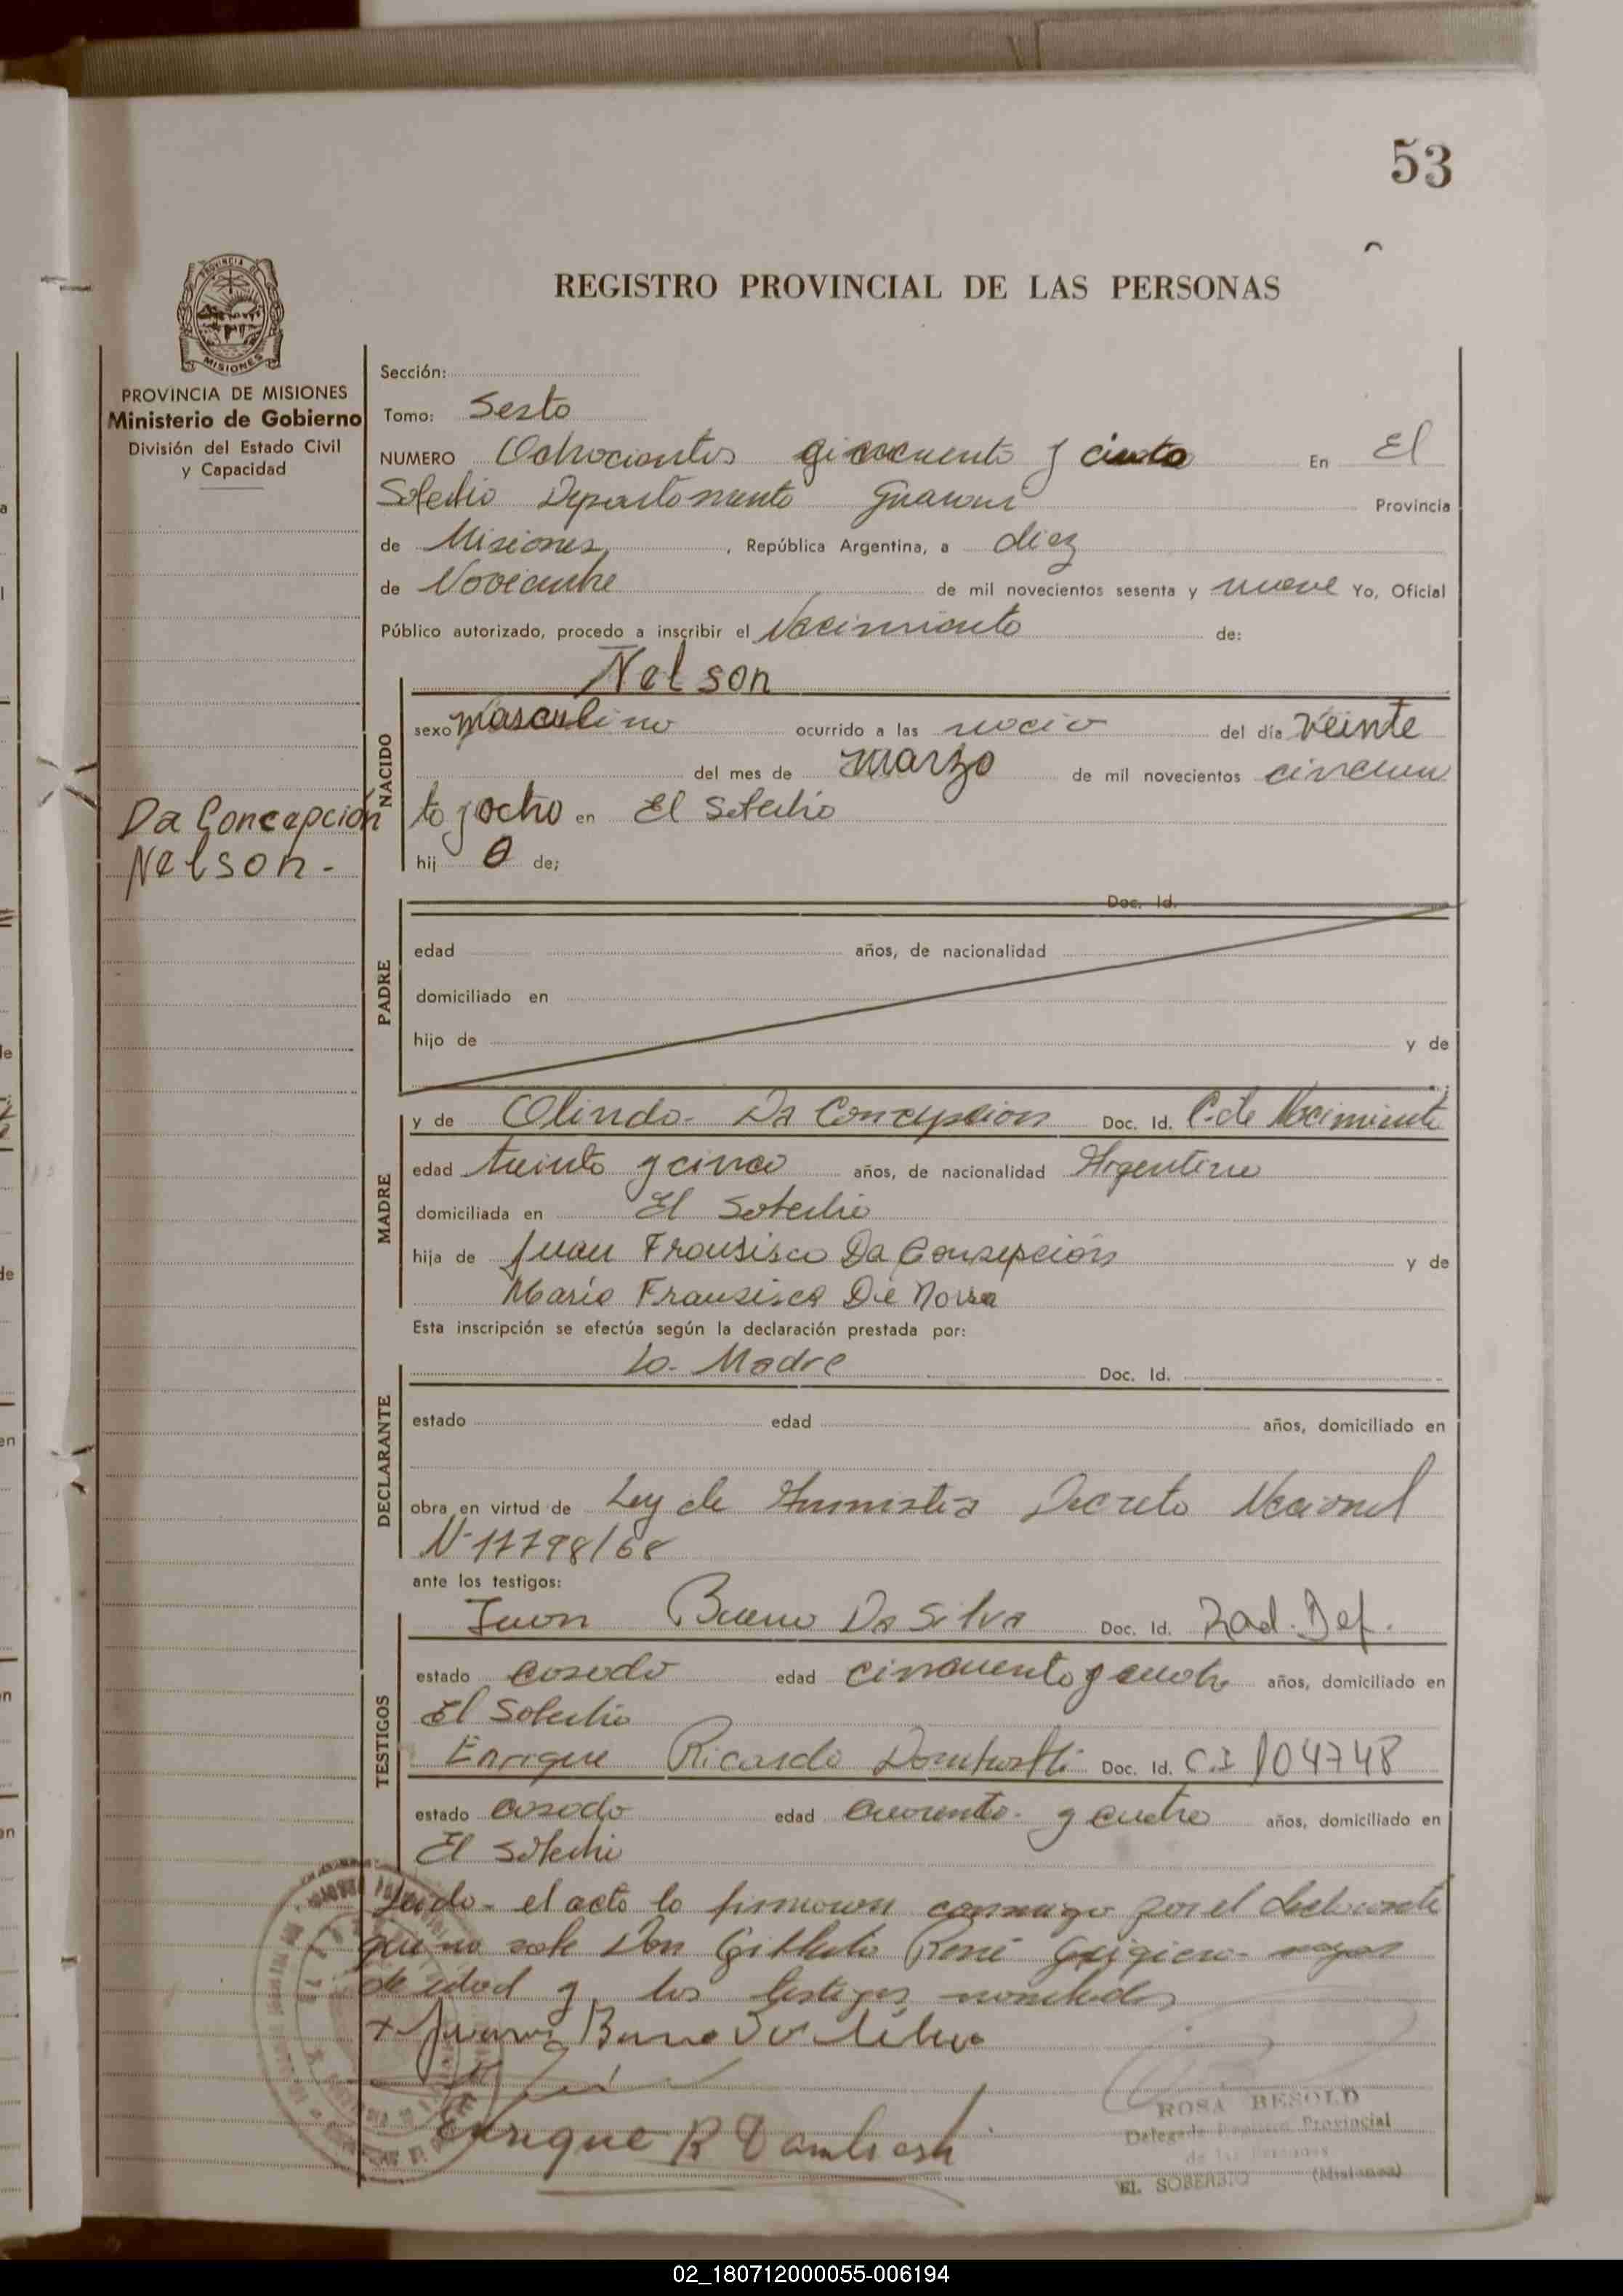 53
REGISTRO PROVINCIAL DE LAS PERSONAS
PROVINCIA DE MISIONES
Ministerio de Gobierno
División del Estado Civil
y Capacidad
Da Concepción
Nelson.-
Sección:
Tomo: Sesto
NUMERO Ochocientos cincuenta y En El
Soberbio Departamento Guarani Provincia
de Misiones, República Argentina, a diez
de Noviembre de mil novecientos sesenta y nueve Yo, Oficial
Público autorizado, procedo a inscribir el Nacimiento de:
NACIDO
Nelson
sexo masculino ocurrido a las del día veinte
del mes de marzo de mil novecientos cincuen
ta y ocho en El Soberbio
hij o de;
PADRE
Doc. Id.
edad años, de nacionalidad
domiciliado en
hijo de y de
MADRE
y de Olinda Da Concepcion Doc. Id. C. de Nacimiento
edad treinta y cinco años, de nacionalidad Argentina
domiciliada en El Soberbio
hija de Juan Fransisco Da Consepción y de
María Fransisca De
Esta inscripción se efectúa según la declaración prestada por:
DECLARANTE
La Madre Doc. Id.
estado edad años, domiciliado en
obra en virtud de Ley de Amnistia Decreto Nacional
Nº 17798/68
ante los testigos:
TESTIGOS
Juan Bueno Da Silva Doc. Id. Rad. Def.
estado casado edad cincuenta y años, domiciliado en
El Soberbio
Enrique Ricardo Doc. Id. C.I 104748
estado casado edad cuarenta y cuatro años, domiciliado en
El Soberbio
Leida el acta la firmaron conmigo por el declarante
que no sabe Don René mayor
de edad y los testigos nombrados
Juan Bueno Da Silva
Enrique R
ROSA BESOLD
Delegada Registro Provincial
de las Personas
EL SOBERBIO (Misiones)
02_180712000055-006194